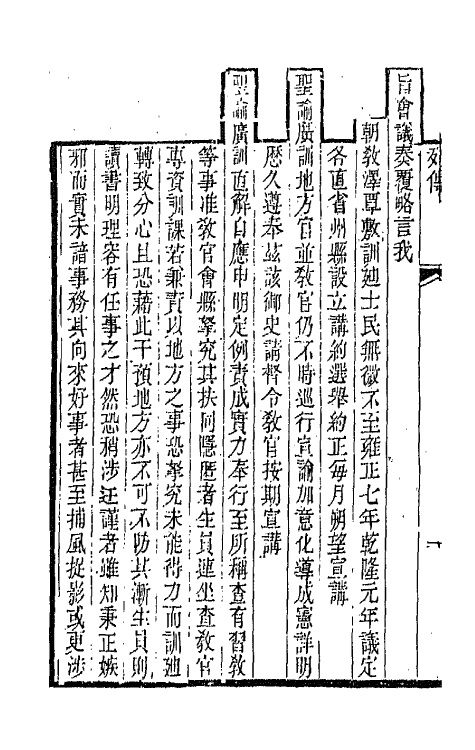 列傳
旨會議奏覆略言我
朝敎澤覃敷訓廸士民無微不至雍正七年乾隆元年議定
各直省州縣設立講約選舉約正每月朔望宣講
聖諭廣訓地方官並敎官仍不時巡行宣諭加意化導成憲詳明
歷久遵奉茲該御史請督令敎官按期宣講
聖諭廣訓直解自應申明定例責成實力奉行至所稱查有習敎
等事准敎官會縣拏究其扶同隱匿者生員連坐查敎官
專資訓課若兼責以地方之事恐拏究未能得力而訓廸
轉致分心且恐藉此干預地方亦不可不防其漸生員則
讀書明理容有任事之才然恐稍涉迂謹者雖知秉正嫉
邪而實未諳事務其向來好事者甚至捕風捉影或更涉